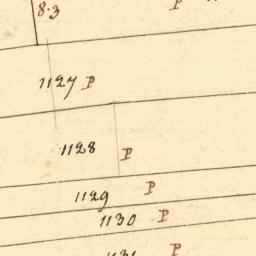 8.3 P
1127 P
1128 P
1129 P
1130 P
1131 P